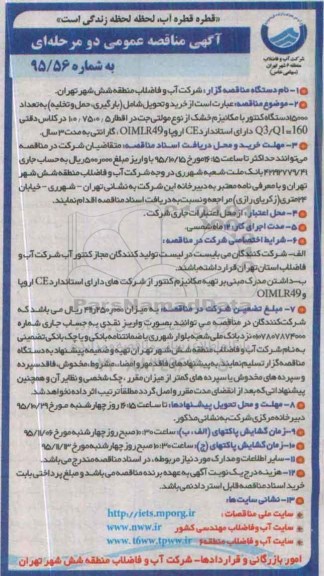 «قطره قطره آب، لحظه لحظه زندگی است»
آگهی مناقصه عمومی دو مرحله‌ای
به شماره ۹۵/۵۶
شرکت آب و فاضلاب
منطقه ۶ شهر تهران
(سهامی خاص)
۱- نام دستگاه مناقصه گزار: شرکت آب و فاضلاب منطقه شش شهر تهران.
۲- موضوع مناقصه: عبارت است از خرید و تحویل شامل (بارگیری، حمل و تخلیه) به تعداد
دستگاه کنتور با مکانیزم خشک از نوع مولتی جت در اقطار
Q3/Q1=160 دارای استاندارد CE اروپا و OIMLR49، گارانتی به مدت ۳ سال.
۳- مهلت خرید و محل دریافت اسناد مناقصه: متقاضیان شرکت در مناقصه
می‌توانند حداکثر تا ساعت ۱۶:۱۵ مورخ ۹۵/۱۰/۱۵ با واریز مبلغ ریال به حساب جاری
بانک ملت شعبه شهرری در وجه شرکت آب و فاضلاب منطقه شش شهر
تهران و با معرفی نامه معتبر به دبیرخانه این شرکت به نشانی تهران - شهرری - خیابان
۲۴متری (زکریای رازی) مراجعه و نسبت به دریافت اسناد مناقصه اقدام نمایند.
۴- محل اعتبار: از محل اعتبارات جاری شرکت.
۵- مدت اجرای کار: ۱۲ ماه شمسی.
۶- شرایط اختصاصی شرکت در مناقصه:
الف- شرکت کنندگان می بایست در لیست تولید کنندگان مجاز کنتور آب شرکت آب و
فاضلاب استان تهران قرار داشته باشند.
ب- داشتن مدرک مبنی بر تهیه مکانیزم کنتور از شرکت های دارای استاندارد CE اروپا
و OIMLR49
۷- مبلغ تضمین شرکت در مناقصه: به میزان ریال می باشد که
شرکت کنندگان در مناقصه می توانند بصورت واریز نقدی به حساب جاری شماره
نزد بانک ملی شعبه بلوار شهرری یا ضمانتنامه بانکی و یا چک بانکی تضمینی
به نام شرکت آب و فاضلاب منطقه شش شهر تهران تهیه و ضمیمه پیشنهاد به دستگاه
مناقصه گزار تسلیم نمایند به پیشنهادهای فاقد مهر و امضاء، مشروط، مخدوش، فاقد سپرده
و سپرده های مخدوش یا سپرده های کمتر از میزان مقرر، چک شخصی و نظایر آن و همچنین
پیشنهاداتی که بعد از انقضای مدت مقرر واصل گردد مطلقاً ترتیب اثر داده نخواهد شد.
۸- مهلت و محل تحویل پیشنهادها: تا ساعت ۱۶:۱۵ روز چهارشنبه مورخ ۹۵/۱۰/۲۹
دبیرخانه مرکزی شرکت به نشانی مذکور.
۹- زمان گشایش پاکتهای (الف، ب): ساعت ۱۰:۳۰ صبح روز چهارشنبه مورخ ۹۵/۱۱/۰۶
۱۰- زمان گشایش پاکتهای (ج): ساعت ۱۰:۳۰ صبح روز چهارشنبه مورخ ۹۵/۱۱/۱۳
۱۱- سایر اطلاعات و مدارک مورد نیاز مربوطه، در اسناد مناقصه مندرج می باشد.
۱۲- هزینه درج یک نوبت آگهی به عهده برنده مناقصه می باشد و مبلغ پرداختی بابت
خرید اسناد مناقصه قابل استرداد نمی باشد.
۱۳- نشانی سایت ها:
سایت ملی مناقصات: http://iets.mporg.ir
سایت آب و فاضلاب مهندسی کشور www.nww.ir
سایت آب و فاضلاب منطقه ۶ www.t6ww.tpww.ir
امور بازرگانی و قراردادها- شرکت آب و فاضلاب منطقه شش شهر تهران